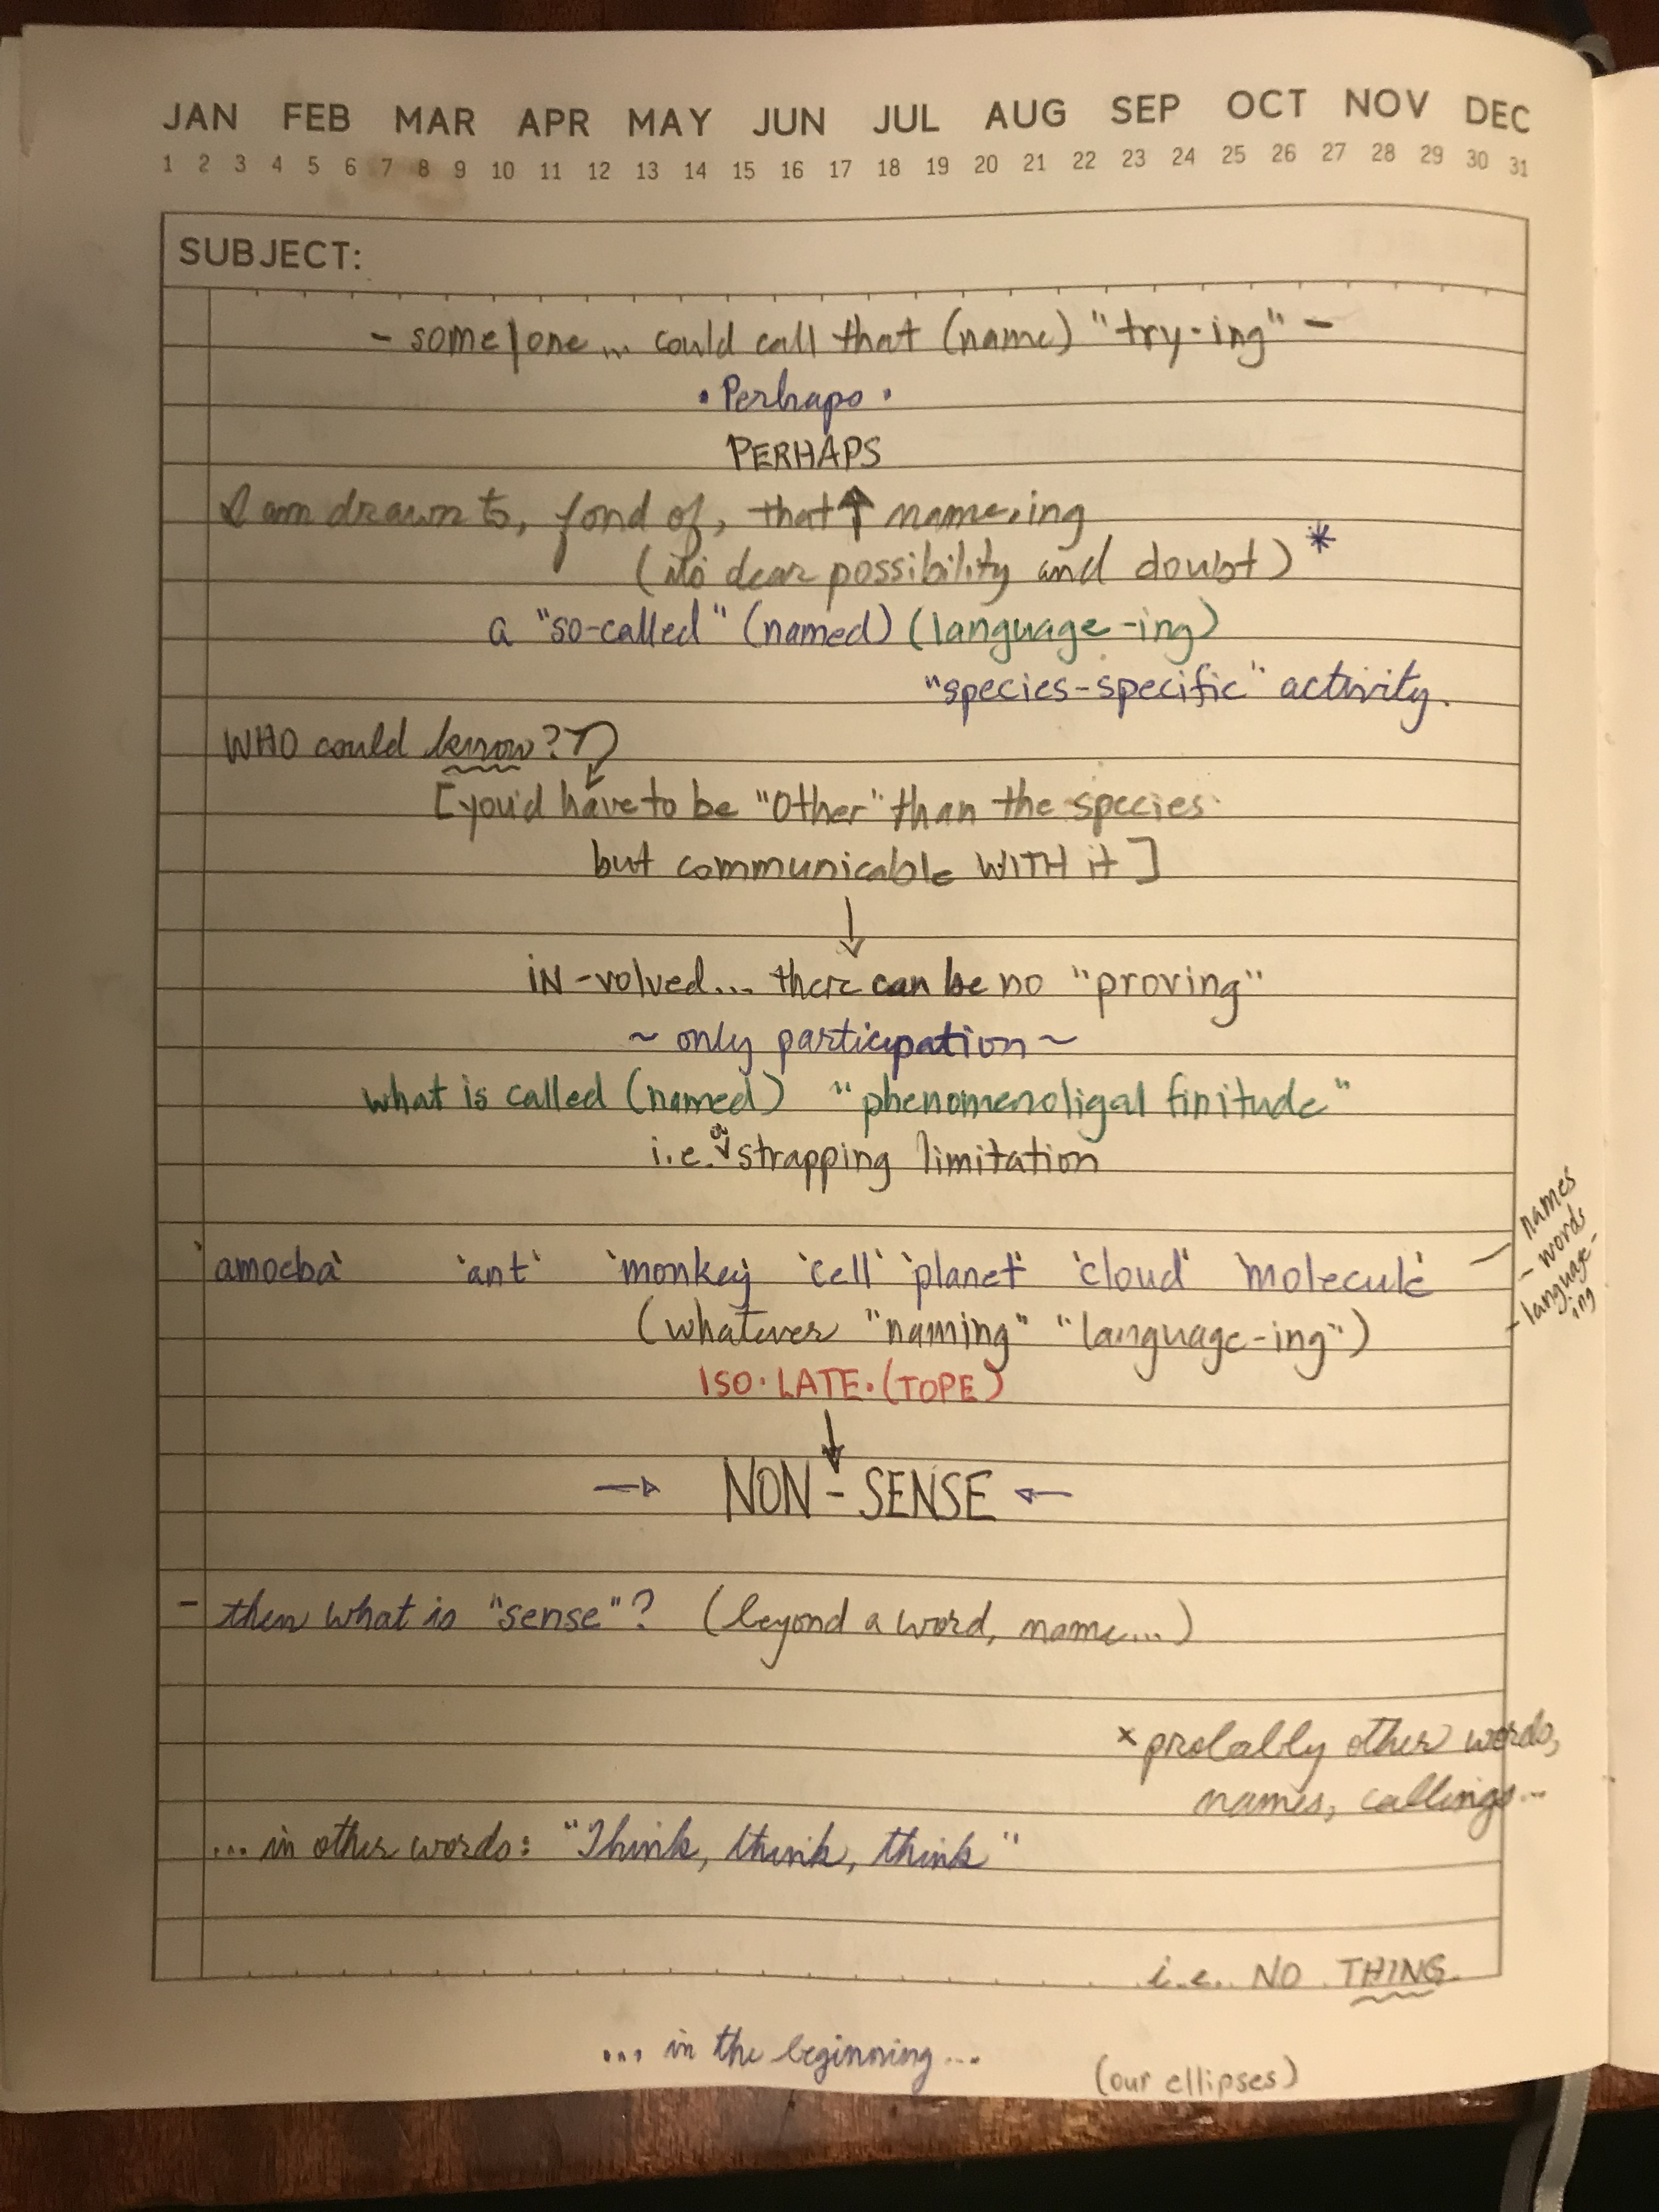 JAN FEB MAR APR MAY JUN JUL AUG SEP OCT NOV DEC
1 2 3 4 5 6 7 8 9 10 11 12 13 14 15 16 17 18 19 20 21 22 23 24 25 26 27 28 29 30 31
SUBJECT:
- some/one... could call that (name) "try-ing" -
• Perhaps •
PERHAPS
I am drawn to, fond of, that ↑ name.ing
(its dear possibility and doubt) *
a "so-called" (named) (language-ing)
"species-specific" activity.
WHO could know?
[you'd have to be "Other" than the species
but communicable WITH it]
↓
iN-volved... there can be no "proving"
~ only participation ~
what is called (named) "phenomenoligal finitude"
i.e. a strapping limitation
'amoeba' 'ant' 'monkey 'cell' 'planet' 'cloud' 'molecule'
– names
– words
– language-
ing
(whatever "naming" "language-ing")
ISO·LATE·(TOPE)
↓
→ NON-SENSE ←
- then what is "sense"? (beyond a word, name...)
x probably other words,
names, callings...
... in other words: "Think, think, think"
i.e. NO THING
... in the beginning...
(our ellipses)